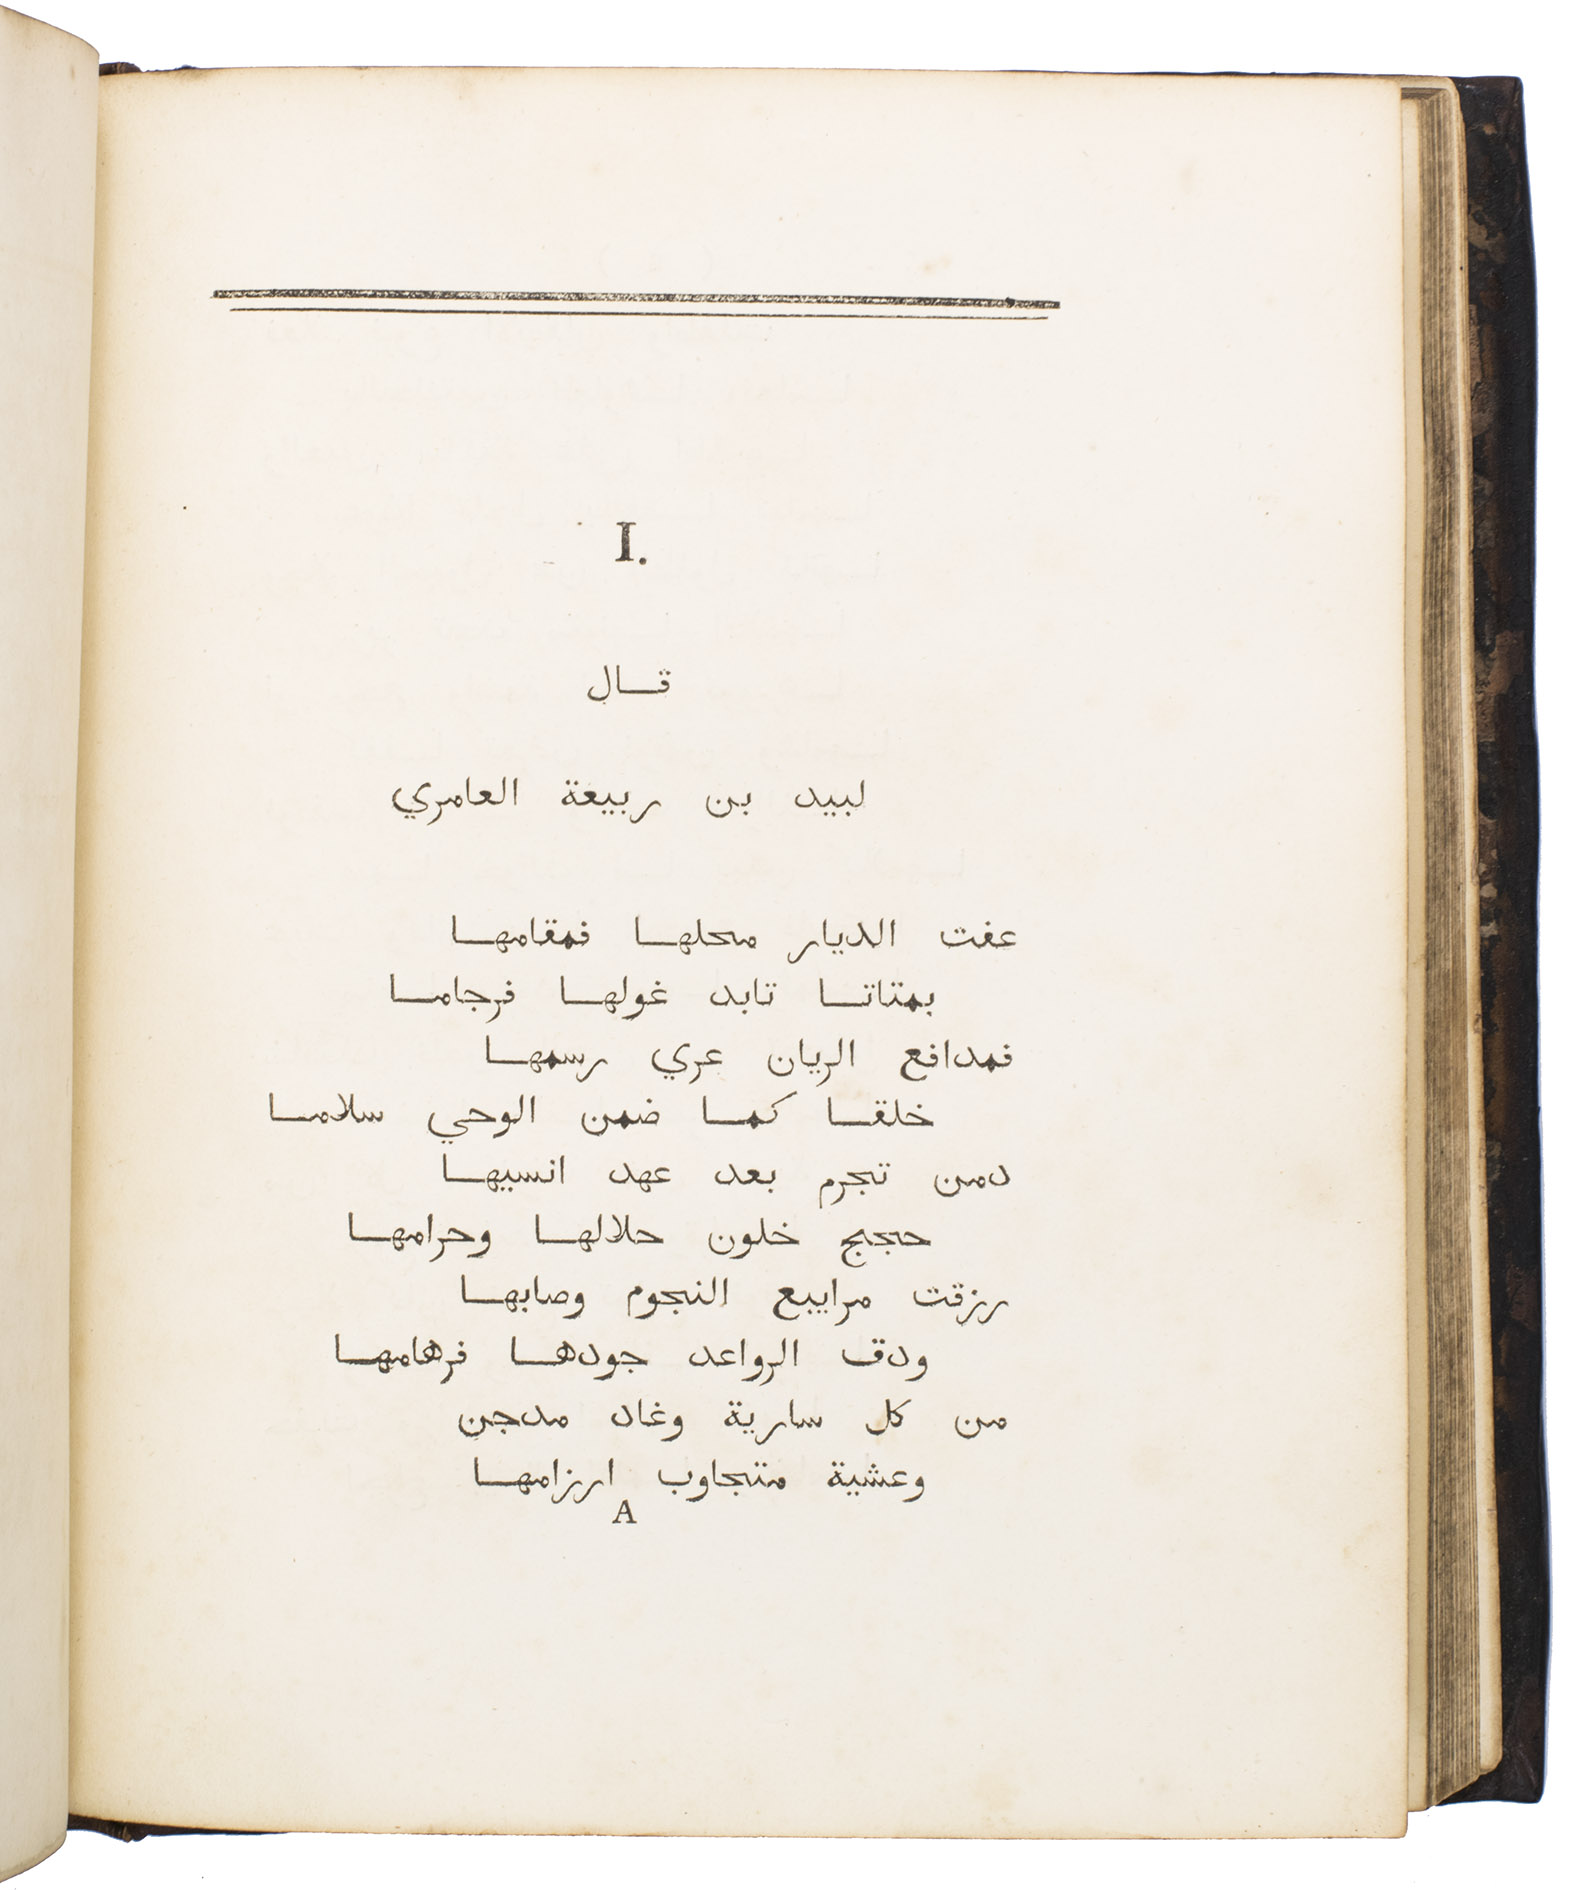 I.
قال
لبيد بن ربيعة العامري
عفت الديار محلها فمقامها
بمتاتا تابد غولها فرجاما
فمدافع الريان عري رسمها
خلقا كما ضمن الوحي سلاما
دمن تجرم بعد عهد انسيها
حجج خلون حلالها وحرامها
رزقت مرابيع النجوم وصابها
ودق الرواعد جودها فرهامها
من كل سارية وغاد مدجن
وعشية متجاوب ارزامها
A